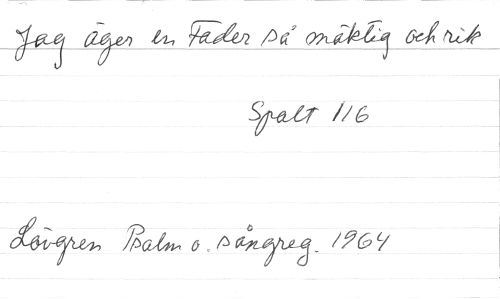 Jag äger en Fader så mäktig och rik
Spalt 116
Lövgren Psalm o. sångreg. 1964